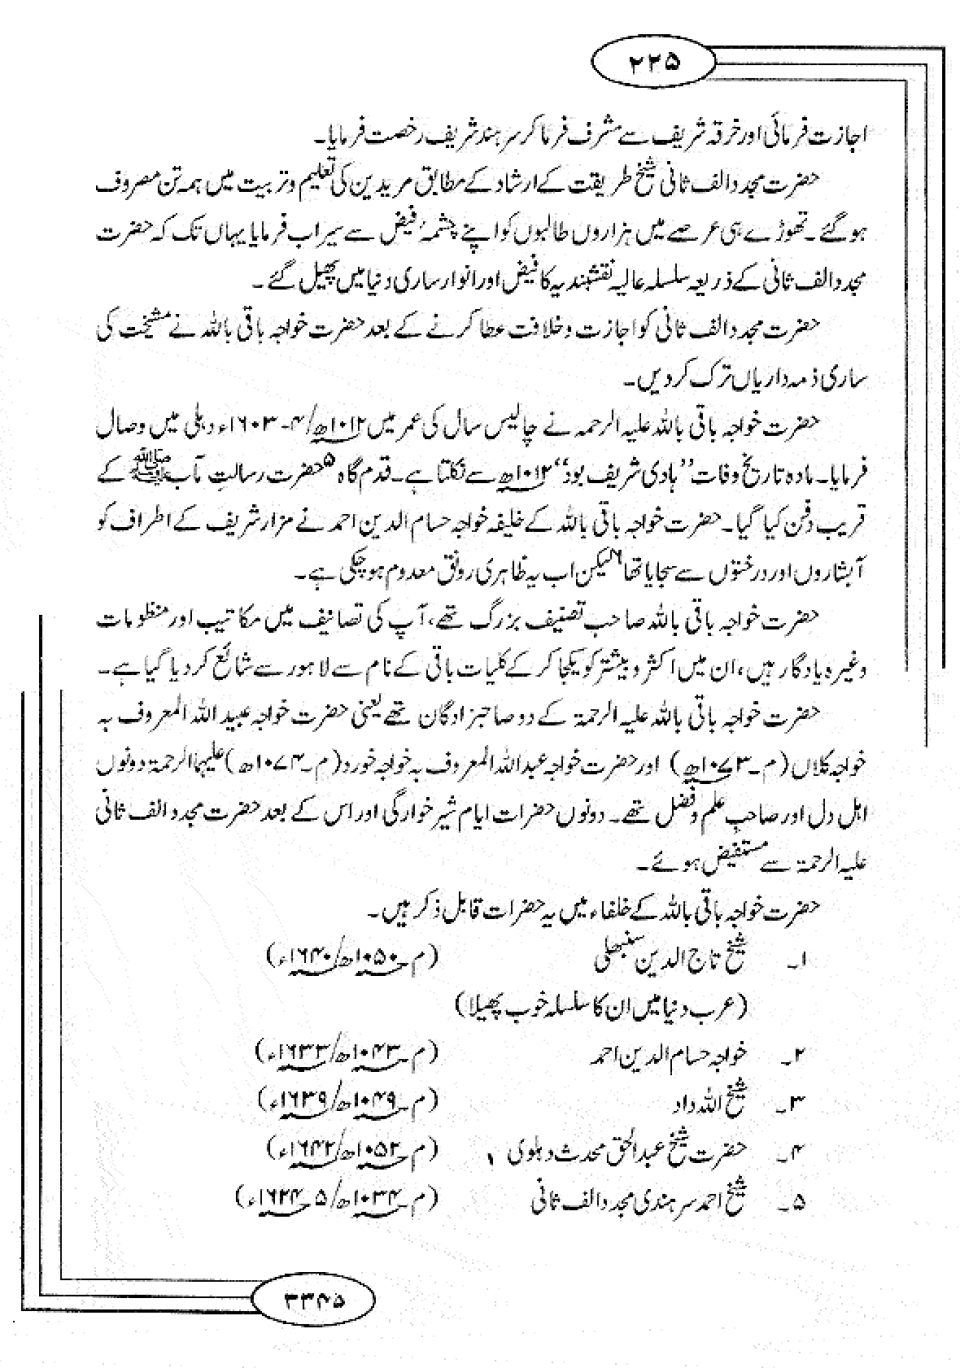 ۲۲۵
اجازت فرمائی اور خرقہ شریف سے مشرف فرما کر سرہند شریف رخصت فرمایا۔
حضرت مجدد الف ثانی شیخ طریقت کے ارشاد کے مطابق مریدین کی تعلیم و تربیت میں ہمہ تن مصروف
ہو گئے۔ تھوڑے ہی عرصے میں ہزاروں طالبوں کو اپنے چشمۂ فیض سے سیراب فرمایا یہاں تک کہ حضرت
مجدد الف ثانی کے ذریعہ سلسلہ عالیہ نقشبندیہ کا فیض اور انوار ساری دنیا میں پھیل گئے۔
حضرت مجدد الف ثانی کو اجازت و خلافت عطا کرنے کے بعد حضرت خواجہ باقی باللہ نے مشیخت کی
ساری ذمہ داریاں ترک کر دیں۔
حضرت خواجہ باقی باللہ علیہ الرحمہ نے چالیس سال کی عمر میں ۱۰۱۲ھ/۴۔۱۶۰۳ء دہلی میں وصال
فرمایا۔ مادہ تاریخ وفات ”ہادی شریف بود“ ۱۰۱۲ھ سے نکلتا ہے۔ قدم گاہ ۵ حضرت رسالت مآب ﷺ کے
قریب دفن کیا گیا۔ حضرت خواجہ باقی باللہ کے خلیفہ خواجہ حسام الدین احمد نے مزار شریف کے اطراف کو
آبشاروں اور درختوں سے سجایا تھا ۶ لیکن اب یہ ظاہری رونق معدوم ہو چکی ہے۔
حضرت خواجہ باقی باللہ صاحب تصنیف بزرگ تھے، آپ کی تصانیف میں مکاتیب اور منظومات
وغیرہ یادگار ہیں، ان میں اکثر و بیشتر کو یکجا کر کے کلیات باقی کے نام سے لاہور سے شائع کر دیا گیا ہے۔
حضرت خواجہ باقی باللہ علیہ الرحمۃ کے دو صاحبزادگان تھے یعنی حضرت خواجہ عبید اللہ المعروف بہ
خواجہ کلاں (م۔۱۰۷۳ھ) اور حضرت خواجہ عبداللہ المعروف بہ خواجہ خورد (م۔۱۰۷۴ھ) علیہما الرحمۃ دونوں
اہل دل اور صاحبِ علم و فضل تھے۔ دونوں حضرات ایام شیر خوارگی اور اس کے بعد حضرت مجدد الف ثانی
علیہ الرحمۃ سے مستفیض ہوئے۔
حضرت خواجہ باقی باللہ کے خلفاء میں یہ حضرات قابل ذکر ہیں۔
۱۔ شیخ تاج الدین سنبھلی (م۔۱۰۵۰ھ/۱۶۴۰ء)
(عرب دنیا میں ان کا سلسلہ خوب پھیلا)
۲۔ خواجہ حسام الدین احمد (م۔۱۰۴۳ھ/۱۶۳۳ء)
۳۔ شیخ اللہ داد (م۔۱۰۴۹ھ/۱۶۳۹ء)
۴۔ حضرت شیخ عبدالحق محدث دہلوی (م۔۱۰۵۲ھ/۱۶۴۲ء)
۵۔ شیخ احمد سرہندی مجدد الف ثانی (م۔۱۰۳۴ھ/۵۔۱۶۲۴ء)
۳۳۴۵